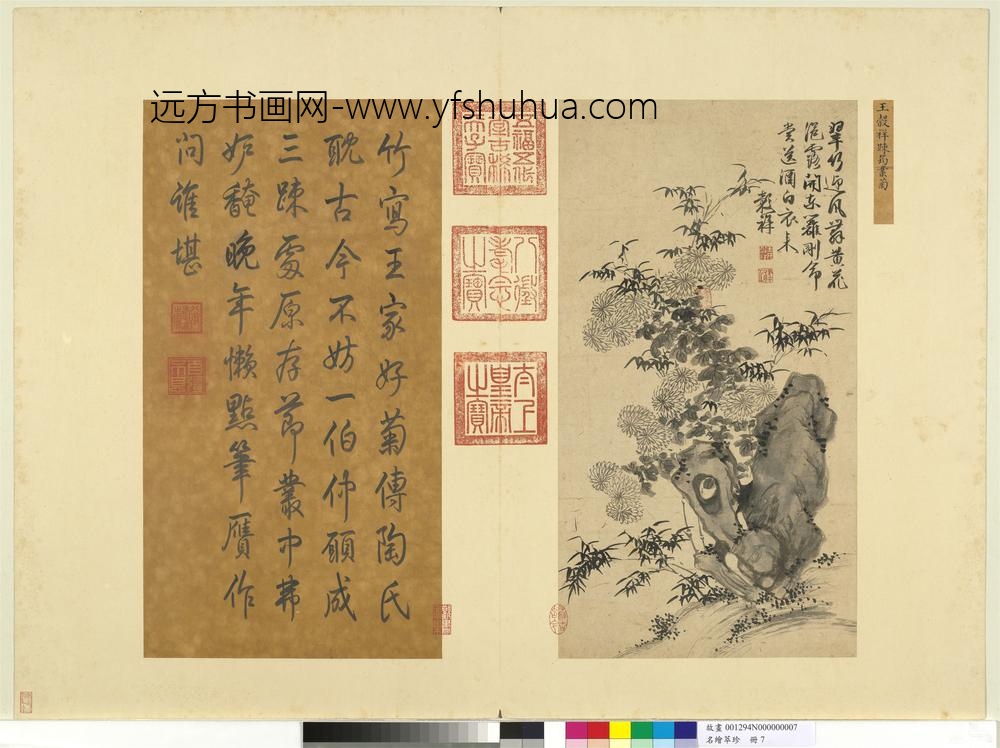 远方书画网-www.yfshuhua.com
王穀祥踈筠叢菊
翠竹迎風舞黃花
浥露開東籬剛命
賞送酒白衣來
穀祥
五福五代
堂古稀
天子寶
八徵
耄念
之寶
太上
皇帝
之寶
竹寫王家好菊傳陶氏
耽古今不妨一伯仲願成
三踈處原存節叢中弗
妬馣晚年懶點筆贋作
问誰堪
故畫 001294N000000007
名繪萃珍 冊 7